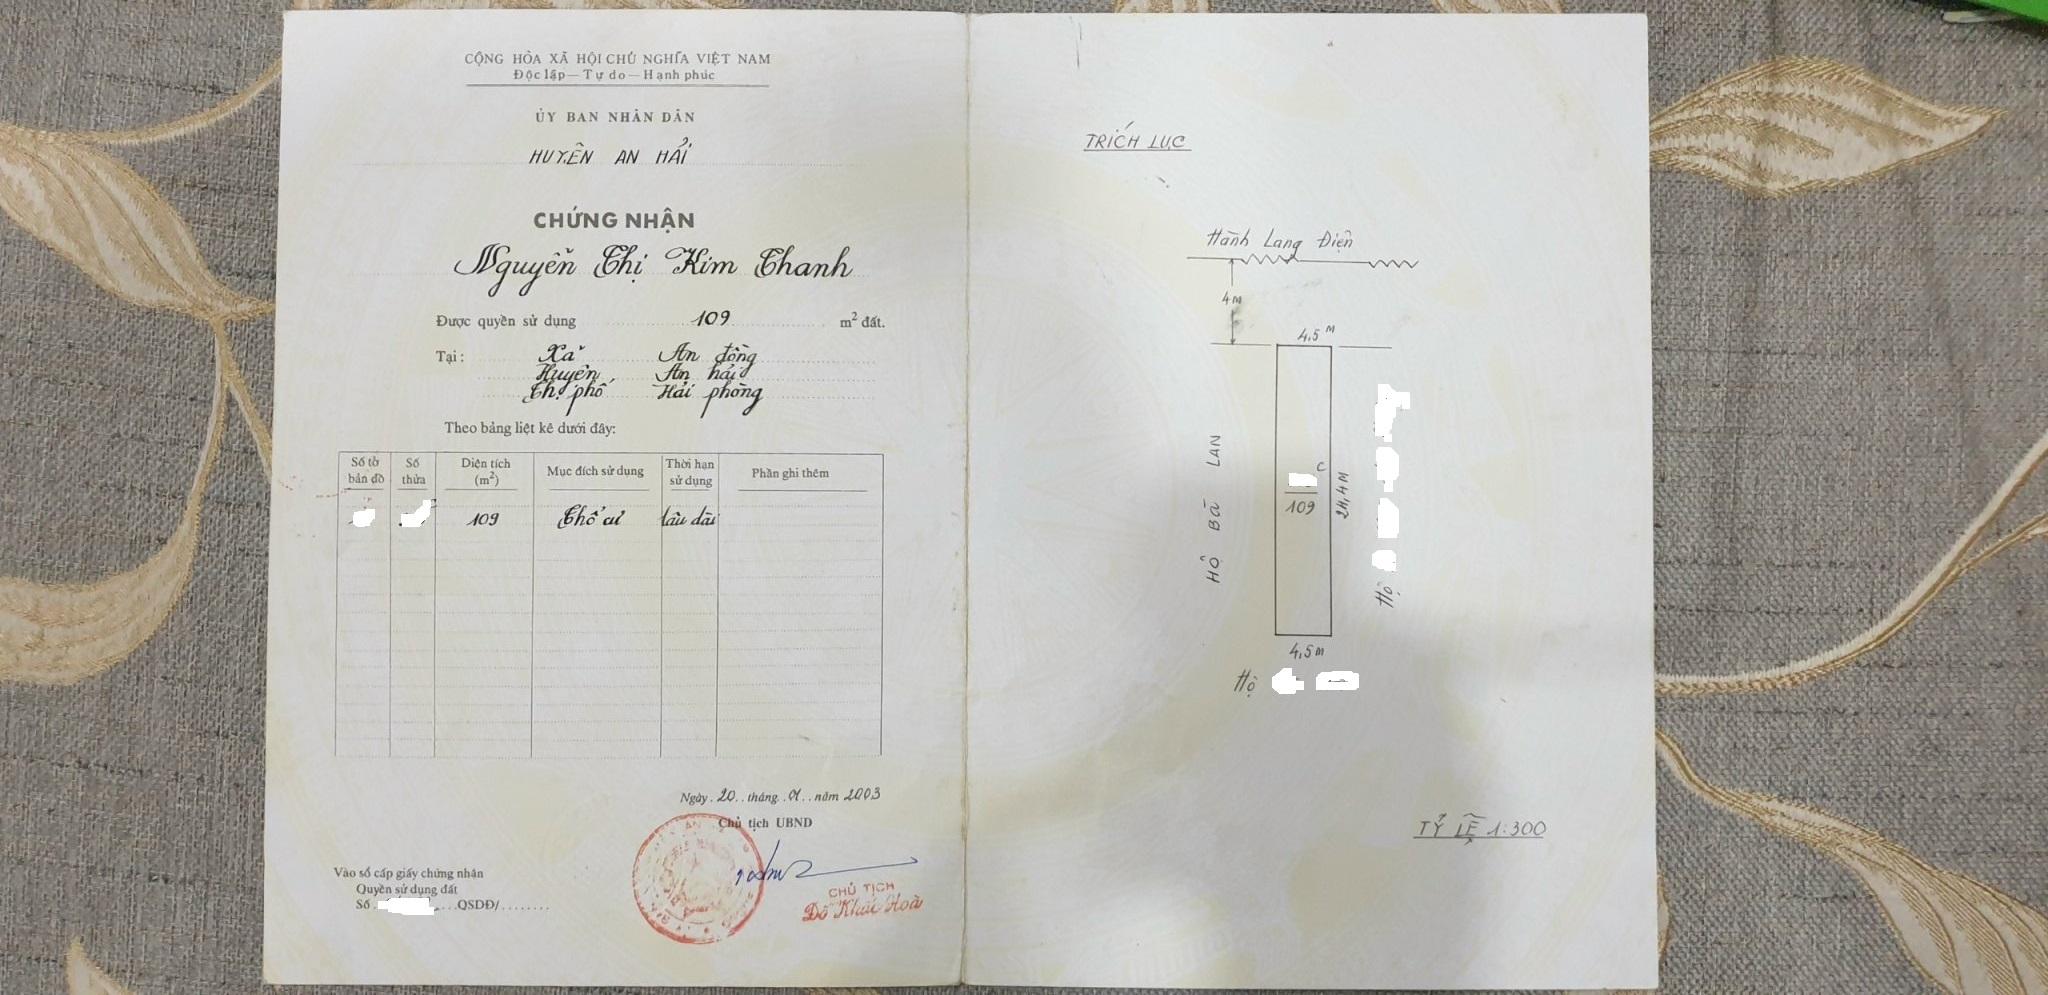 CỘNG HÒA XÃ HỘI CHỦ NGHĨA VIỆT NAM
Độc lập — Tự do — Hạnh phúc
ỦY BAN NHÂN DÂN
HUYỆN AN HẢI
CHỨNG NHẬN
Nguyễn Thị Kim Thanh
Được quyền sử dụng 109 m² đất.
Tại: Xã An đồng
Huyện An hải
Th. phố Hải phòng
Theo bảng liệt kê dưới đây:
Số tờ bản đồ Số thửa Diện tích (m²) Mục đích sử dụng Thời hạn sử dụng Phần ghi thêm
109 Thổ cư lâu dài
Ngày 20 tháng 01 năm 2003
Chủ tịch UBND
CHỦ TỊCH
Đỗ Khắc Hoà
Vào sổ cấp giấy chứng nhận
Quyền sử dụng đất
Số QSDĐ/
TRÍCH LỤC
Hành Lang Điện
4M
4,5M
HỘ BÀ LAN
C
109
24,4M
Hộ
4,5M
Hộ
TỶ LỆ 1:300